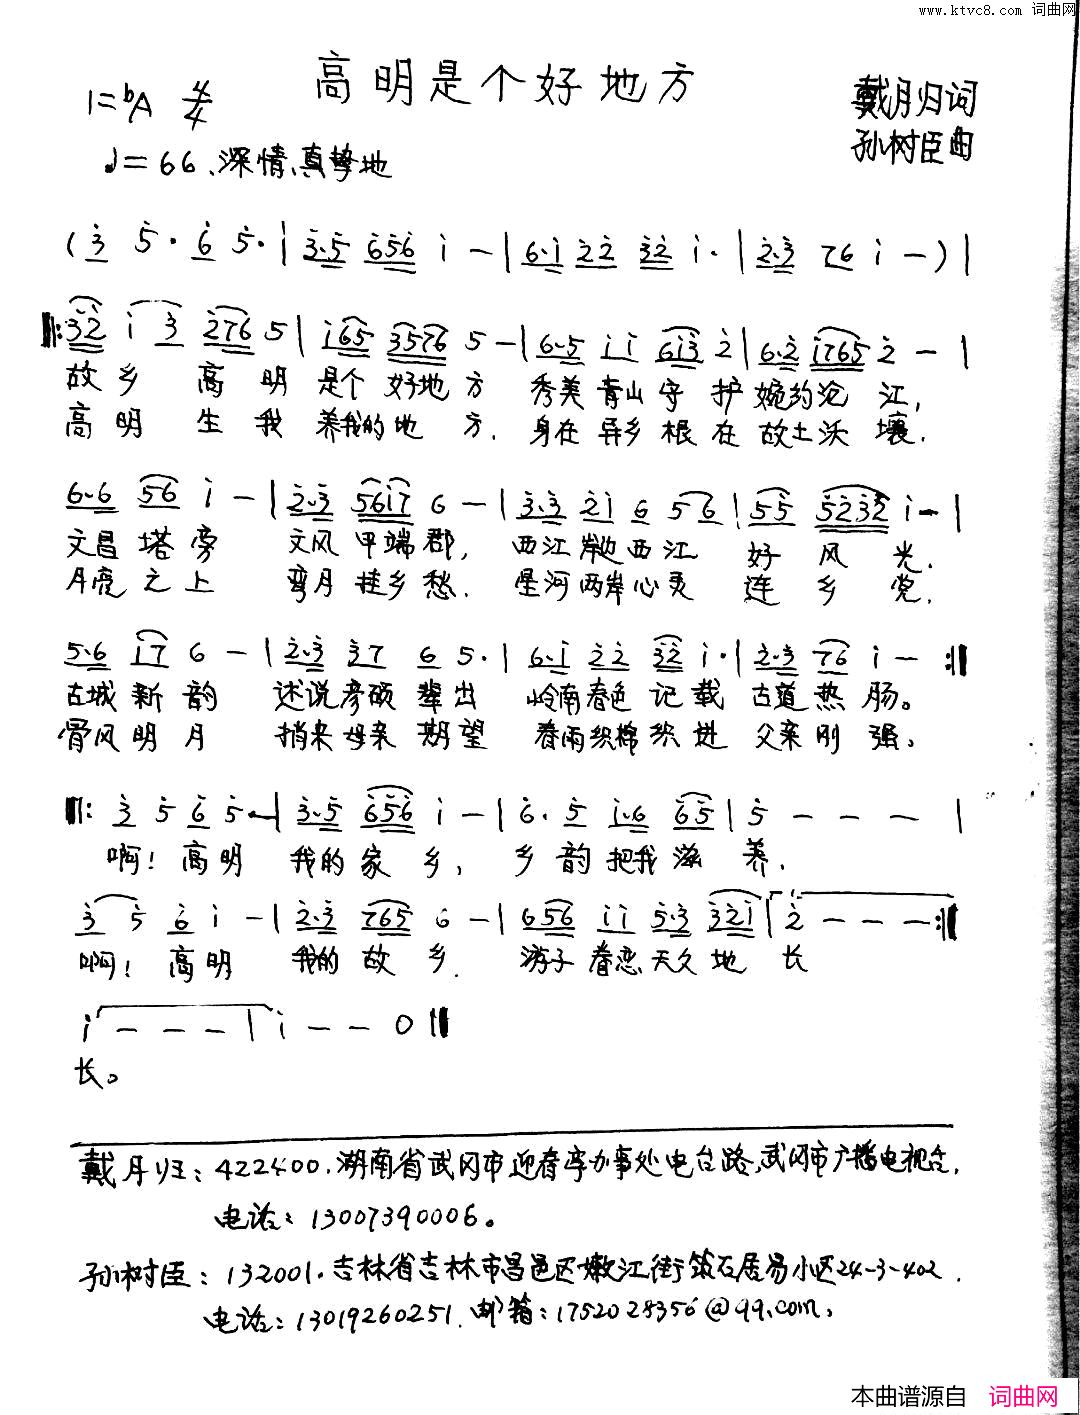 www.ktvc8.com 词曲网
高明是个好地方
1=bA 4/4
戴月归词
♩=66、深情、真挚地
孙树臣曲
(3 5· 6 5·|3·5 656 i －|6·i 22 32 i·|2·3 76 i －)|
‖:32 i 3 276 5|i65 3576 5 －|6·5 ii 6i3 2|6·2 i765 2 －|
故乡 高明 是个好地方 秀美青山守护婉约沧江，
高明 生我 养我的地方．身在异乡根在故土沃壤．
6·6 56 i －|2·3 56i7 6 －|3·3 2i 6 56|55 5232 i －|
文昌塔旁 文风甲端郡， 西江岸边西江 好风光．
月亮之上 弯月挂乡愁． 星河两岸心灵 连乡党．
5·6 i7 6 －|2·3 37 6 5·|6·i 22 32 i·|2·3 76 i － :‖
古城新韵 述说彦硕辈出 岭南春色记载 古道热肠。
骨风明月 捎来母亲期望 春雨织棉织进 父亲刚强。
‖: 3 5 6 5－|3·5 656 i －|6· 5 i·6 65|5 － － － |
啊！高明 我的家乡， 乡韵把我滋养．
3 5 6 i －|2·3 765 6 －|656 ii 5·3 32i|2 － － － :‖
啊！高明 我的故乡． 游子眷恋天久地长
i － － －|i － － 0 ‖
长。
戴月归：422400．湖南省武冈市迎春亭办事处电台路，武冈市广播电视台，
电话：13007390006。
孙树臣：132001．吉林省吉林市昌邑区嫩江街筑石居易小区24-3-402．
电话：13019260251．邮箱：1752028356@qq.com．
本曲谱源自 词曲网